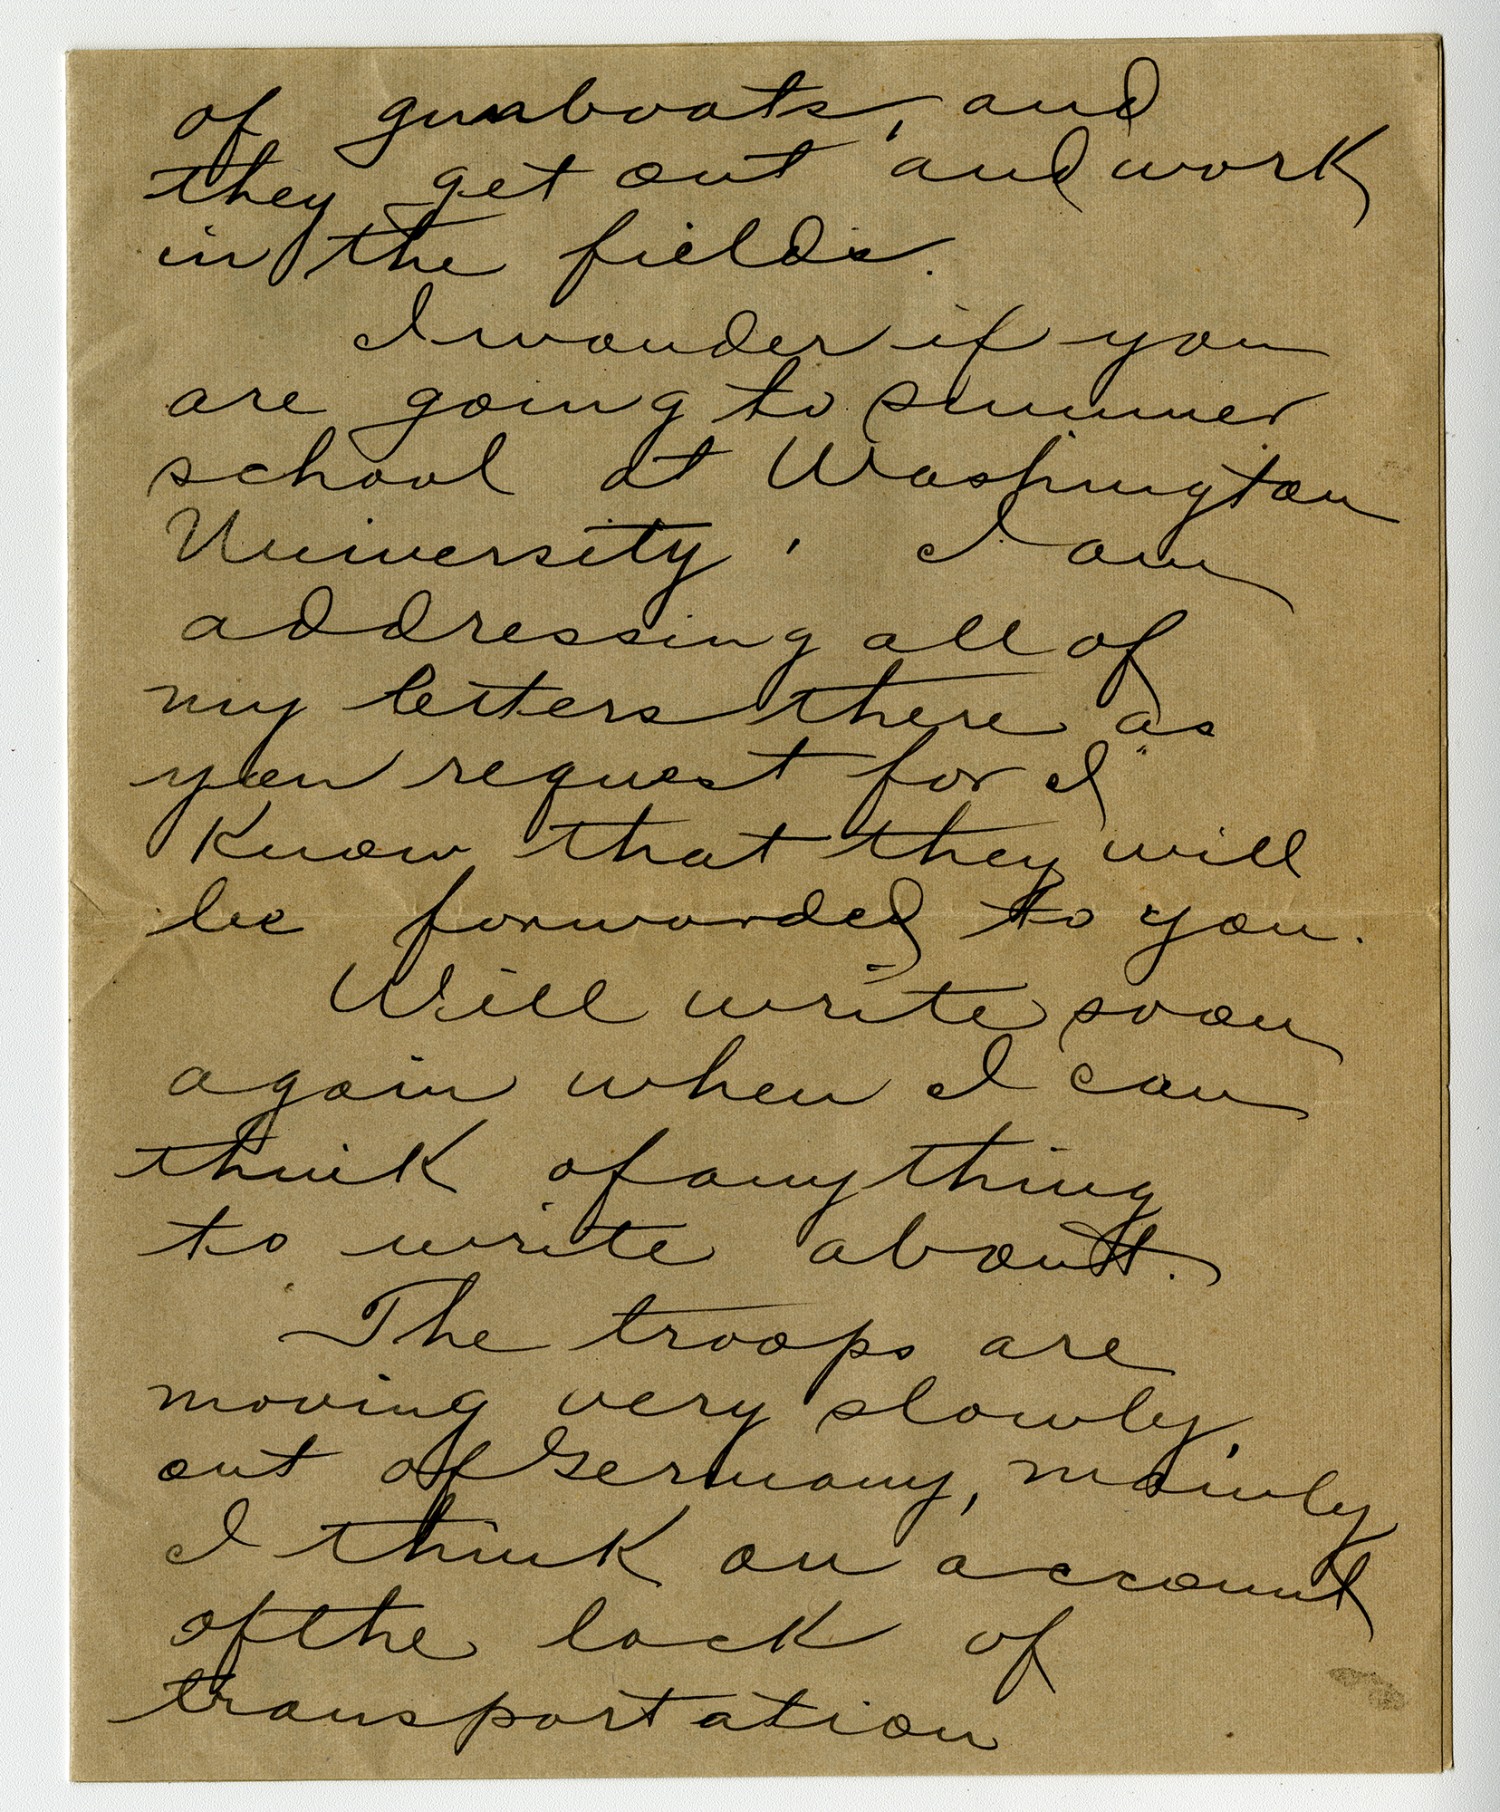 of gunboats, and
they get out and work
in the fields.
I wonder if you
are going to summer
school at Washington
University. I am
addressing all of
my letters there as
you request for I
know that they will
be forwarded to you.
Will write soon
again when I can
think of anything
to write about.
The troops are
moving very slowly,
out of Germany, mainly
I think on account
of the lack of
transportation